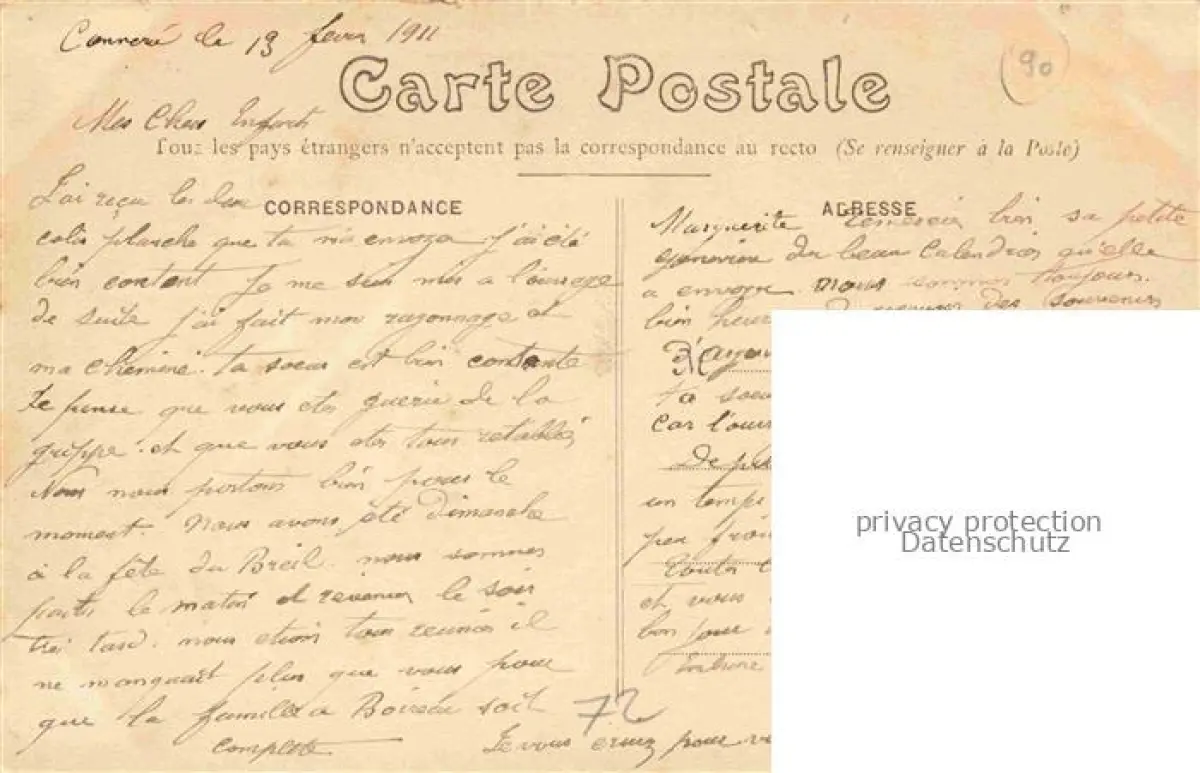 Connerré le 13 fevri 1911
(90)
Carte Postale
Mes Chers Enfants
Touz les pays étrangers n'acceptent pas la correspondance au recto (Se renseigner à la Poste)
CORRESPONDANCE
J'ai reçu les deux
colis planche que tu m'a envoya j'ai été
bien content Je me suis mis a l'ouvrage
de suite j'ai fait mon rayonnage et
ma cheminé. ta soeur est bien contente
Je pense que vous etes guerie de la
grippe. et que vous etes tous retablis
Nous nous portons bien pour le
moment. Nous avons été Dimanche
à la fête du Breil. nous sommes
partis le matin et revenus le soir
tres tard. nous etions tous reunis il
ne manquait plus que vous pour
que la famille a Boireau soit
complete
72
ADRESSE
Marguerite remercie bien sa petite
Genevieve du beau Calendrier qu'elle
a envoyer nous sommes toujours
bien heur des souvenirs
ta soeu
car l'ouvr
Depui
un temps
peu froi
toutes
et vous
bon pour
Je vous pour v
privacy protection
Datenschutz